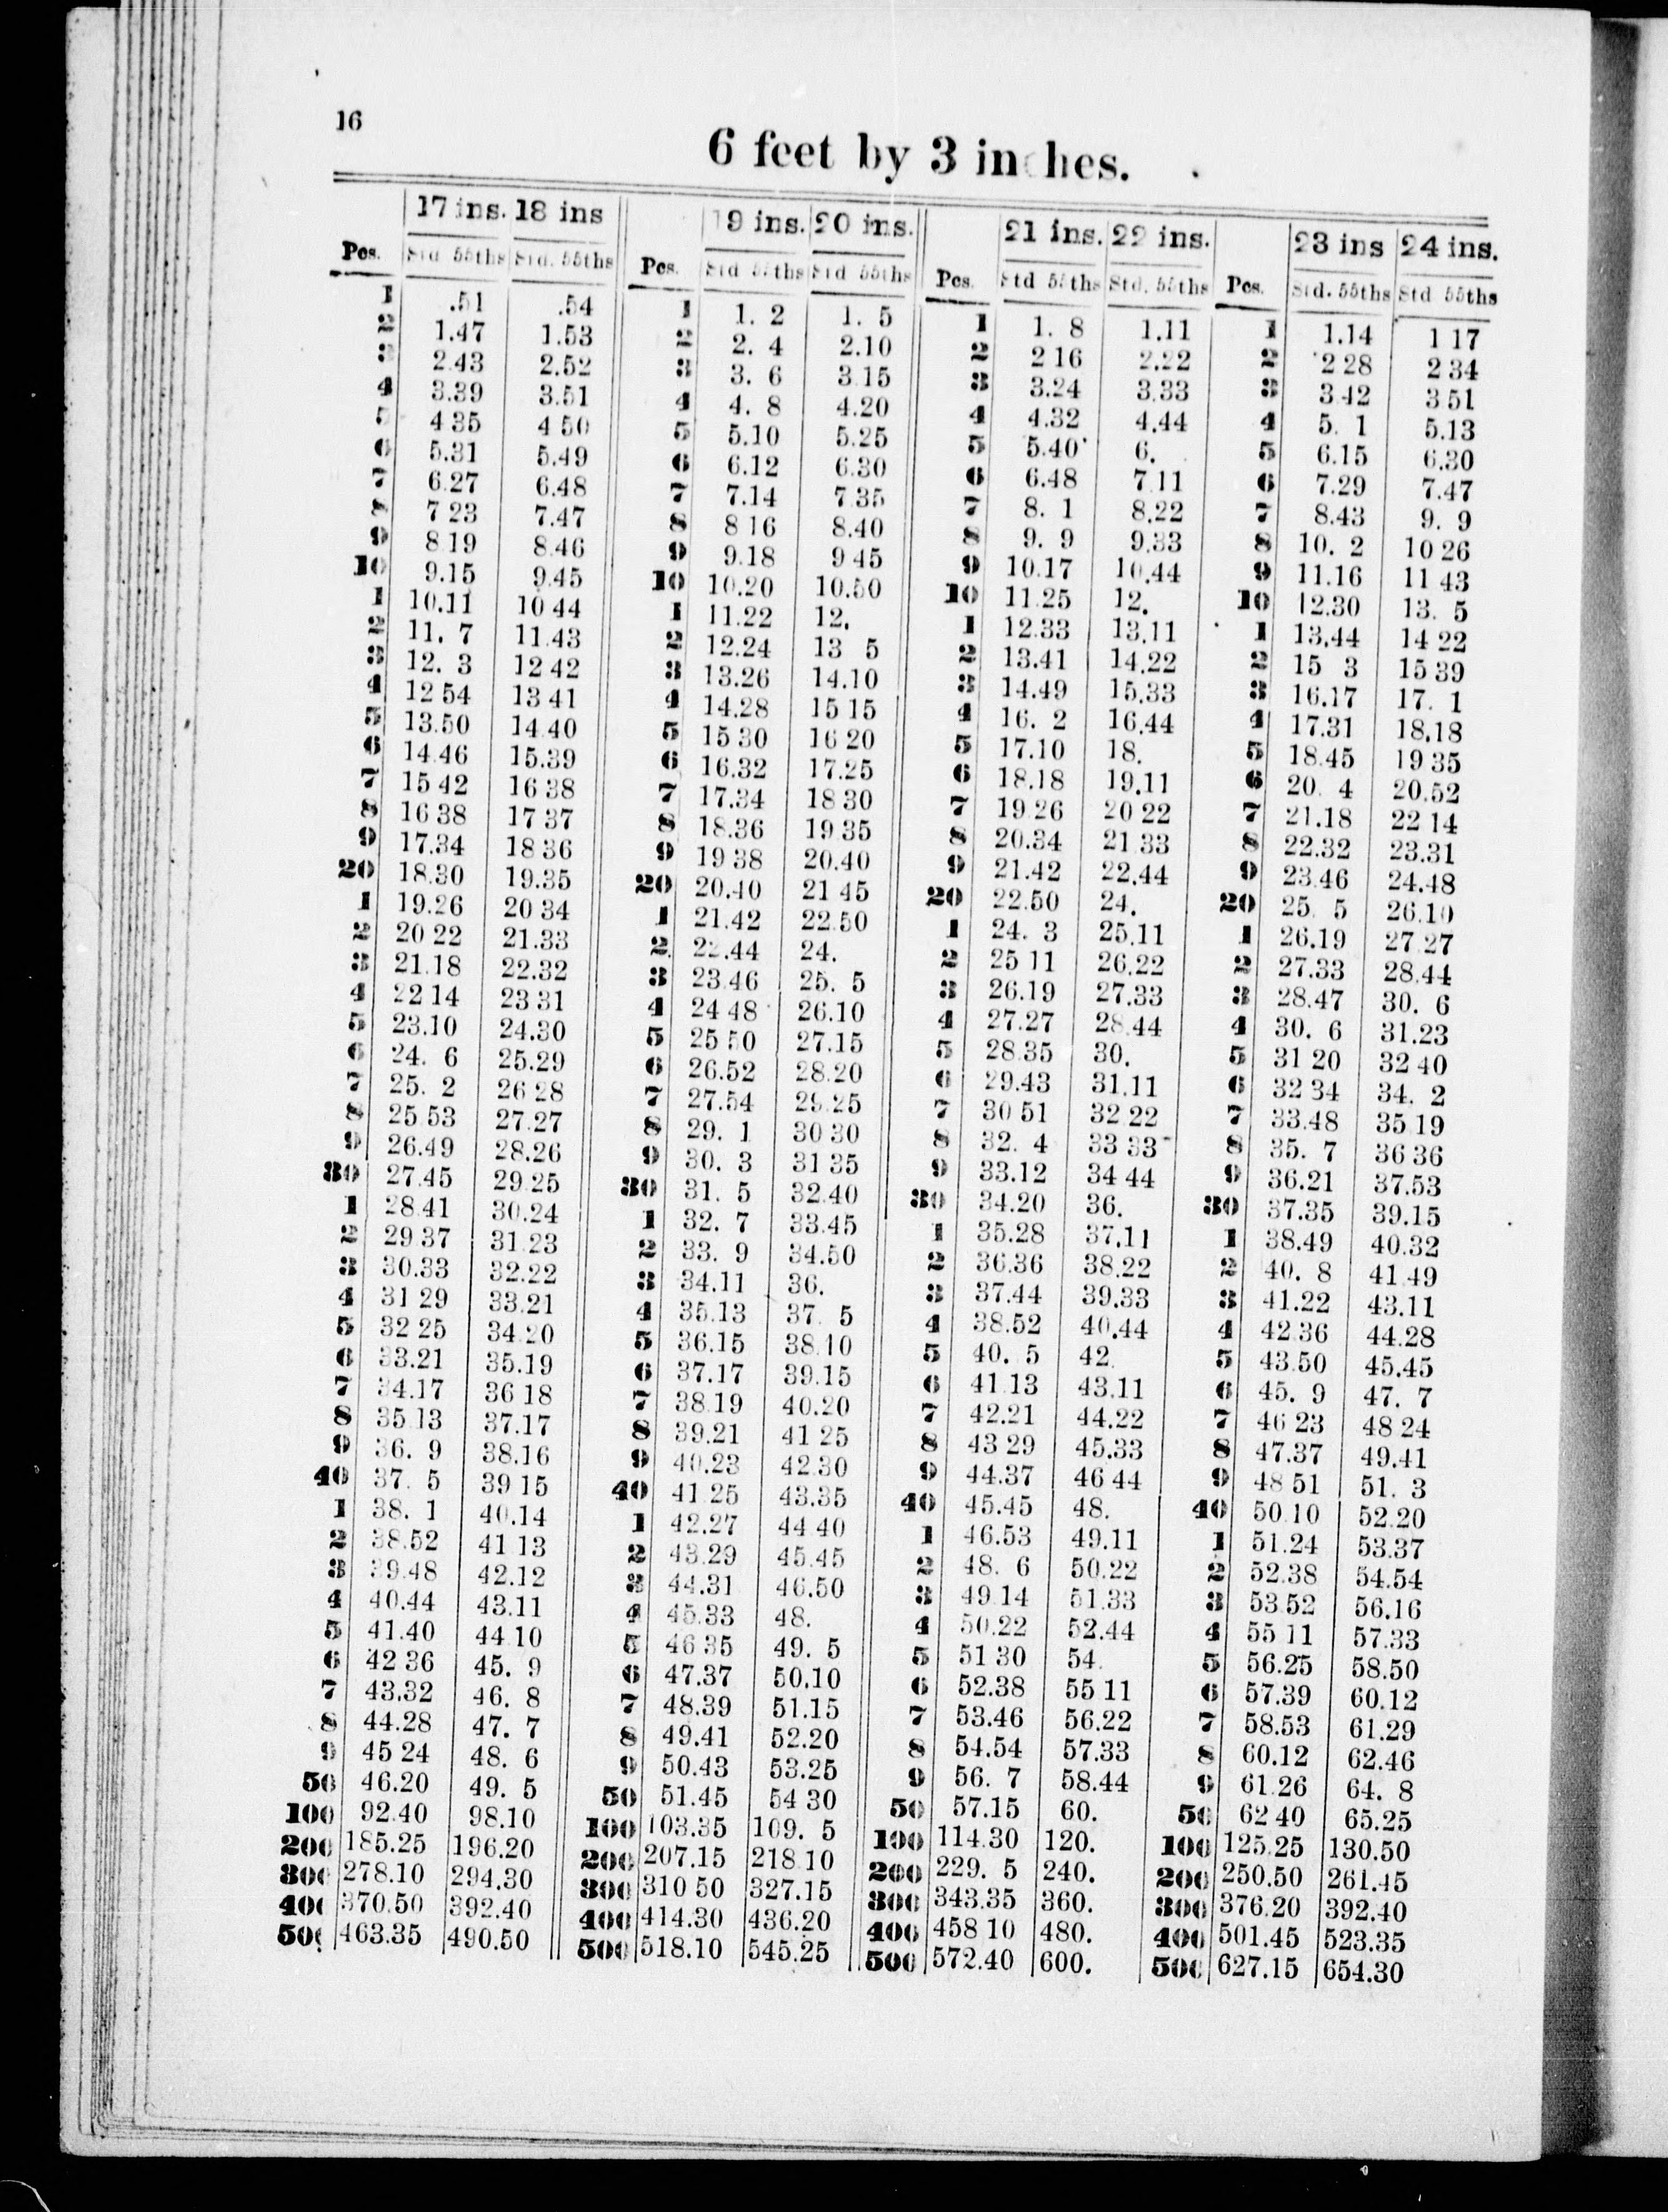 16
6 feet by 3 inches.
17 ins. 18 ins 19 ins. 20 ins. 21 ins. 22 ins. 23 ins 24 ins.
Pcs. Std 55ths Std. 55ths Pcs. Std 55ths Std 55ths Pcs. Std 55ths Std. 55ths Pcs. Std. 55ths Std 55ths
1 .51 .54 1 1. 2 1. 5 1 1. 8 1.11 1 1.14 1 17
2 1.47 1.53 2 2. 4 2.10 2 2 16 2.22 2 2 28 2 34
3 2.43 2.52 3 3. 6 3.15 3 3.24 3.33 3 3.42 3 51
4 3.39 3.51 4 4. 8 4.20 4 4.32 4.44 4 5. 1 5.13
5 4 35 4 50 5 5.10 5.25 5 5.40 6. 5 6.15 6.30
6 5.31 5.49 6 6.12 6.30 6 6.48 7.11 6 7.29 7.47
7 6.27 6.48 7 7.14 7 35 7 8. 1 8.22 7 8.43 9. 9
8 7 23 7.47 8 8 16 8.40 8 9. 9 9.33 8 10. 2 10 26
9 8 19 8.46 9 9.18 9 45 9 10.17 10.44 9 11.16 11 43
10 9.15 9.45 10 10.20 10.50 10 11.25 12. 10 12.30 13. 5
1 10.11 10 44 1 11.22 12. 1 12.33 13.11 1 13.44 14 22
2 11. 7 11.43 2 12.24 13 5 2 13.41 14.22 2 15 3 15 39
3 12. 3 12 42 3 13.26 14.10 3 14.49 15.33 3 16.17 17. 1
4 12 54 13 41 4 14.28 15 15 4 16. 2 16.44 4 17.31 18.18
5 13.50 14.40 5 15 30 16 20 5 17.10 18. 5 18.45 19 35
6 14.46 15.39 6 16.32 17.25 6 18.18 19.11 6 20. 4 20.52
7 15 42 16 38 7 17.34 18 30 7 19 26 20 22 7 21.18 22 14
8 16 38 17 37 8 18.36 19 35 8 20.34 21 33 8 22.32 23.31
9 17.34 18 36 9 19 38 20.40 9 21.42 22.44 9 23.46 24.48
20 18.30 19.35 20 20.40 21 45 20 22.50 24. 20 25. 5 26.10
1 19.26 20 34 1 21.42 22.50 1 24. 3 25.11 1 26.19 27 27
2 20 22 21.33 2 22.44 24. 2 25 11 26.22 2 27.33 28.44
3 21.18 22.32 3 23.46 25. 5 3 26.19 27.33 3 28.47 30. 6
4 22 14 23 31 4 24 48 26.10 4 27.27 28.44 4 30. 6 31.23
5 23.10 24.30 5 25 50 27.15 5 28.35 30. 5 31 20 32 40
6 24. 6 25.29 6 26.52 28.20 6 29.43 31.11 6 32 34 34. 2
7 25. 2 26 28 7 27.54 29.25 7 30 51 32 22 7 33.48 35.19
8 25 53 27.27 8 29. 1 30 30 8 32. 4 33 33 8 35. 7 36 36
9 26.49 28.26 9 30. 3 31 35 9 33.12 34 44 9 36.21 37.53
30 27.45 29.25 30 31. 5 32.40 30 34.20 36. 30 37.35 39.15
1 28.41 30.24 1 32. 7 33.45 1 35.28 37.11 1 38.49 40.32
2 29 37 31.23 2 33. 9 34.50 2 36.36 38.22 2 40. 8 41.49
3 30.33 32.22 3 34.11 36. 3 37.44 39.33 3 41.22 43.11
4 31 29 33.21 4 35.13 37. 5 4 38.52 40.44 4 42.36 44.28
5 32 25 34.20 5 36.15 38.10 5 40. 5 42. 5 43.50 45.45
6 33.21 35.19 6 37.17 39.15 6 41.13 43.11 6 45. 9 47. 7
7 34.17 36 18 7 38.19 40.20 7 42.21 44.22 7 46 23 48 24
8 35.13 37.17 8 39.21 41 25 8 43 29 45.33 8 47.37 49.41
9 36. 9 38.16 9 40.23 42.30 9 44.37 46 44 9 48 51 51. 3
40 37. 5 39 15 40 41.25 43.35 40 45.45 48. 40 50.10 52.20
1 38. 1 40.14 1 42.27 44 40 1 46.53 49.11 1 51.24 53.37
2 38.52 41 13 2 43.29 45.45 2 48. 6 50.22 2 52.38 54.54
3 39.48 42.12 3 44.31 46.50 3 49.14 51.33 3 53.52 56.16
4 40.44 43.11 4 45.33 48. 4 50.22 52.44 4 55 11 57.33
5 41.40 44 10 5 46 35 49. 5 5 51 30 54. 5 56.25 58.50
6 42 36 45. 9 6 47.37 50.10 6 52.38 55 11 6 57.39 60.12
7 43.32 46. 8 7 48.39 51.15 7 53.46 56.22 7 58.53 61.29
8 44.28 47. 7 8 49.41 52.20 8 54.54 57.33 8 60.12 62.46
9 45 24 48. 6 9 50.43 53.25 9 56. 7 58.44 9 61.26 64. 8
50 46.20 49. 5 50 51.45 54 30 50 57.15 60. 50 62 40 65.25
100 92.40 98.10 100 103.35 109. 5 100 114.30 120. 100 125.25 130.50
200 185.25 196.20 200 207.15 218 10 200 229. 5 240. 200 250.50 261.45
300 278.10 294.30 300 310 50 327.15 300 343.35 360. 300 376.20 392.40
400 370.50 392.40 400 414.30 436.20 400 458 10 480. 400 501.45 523.35
500 463.35 490.50 500 518.10 545.25 500 572.40 600. 500 627.15 654.30